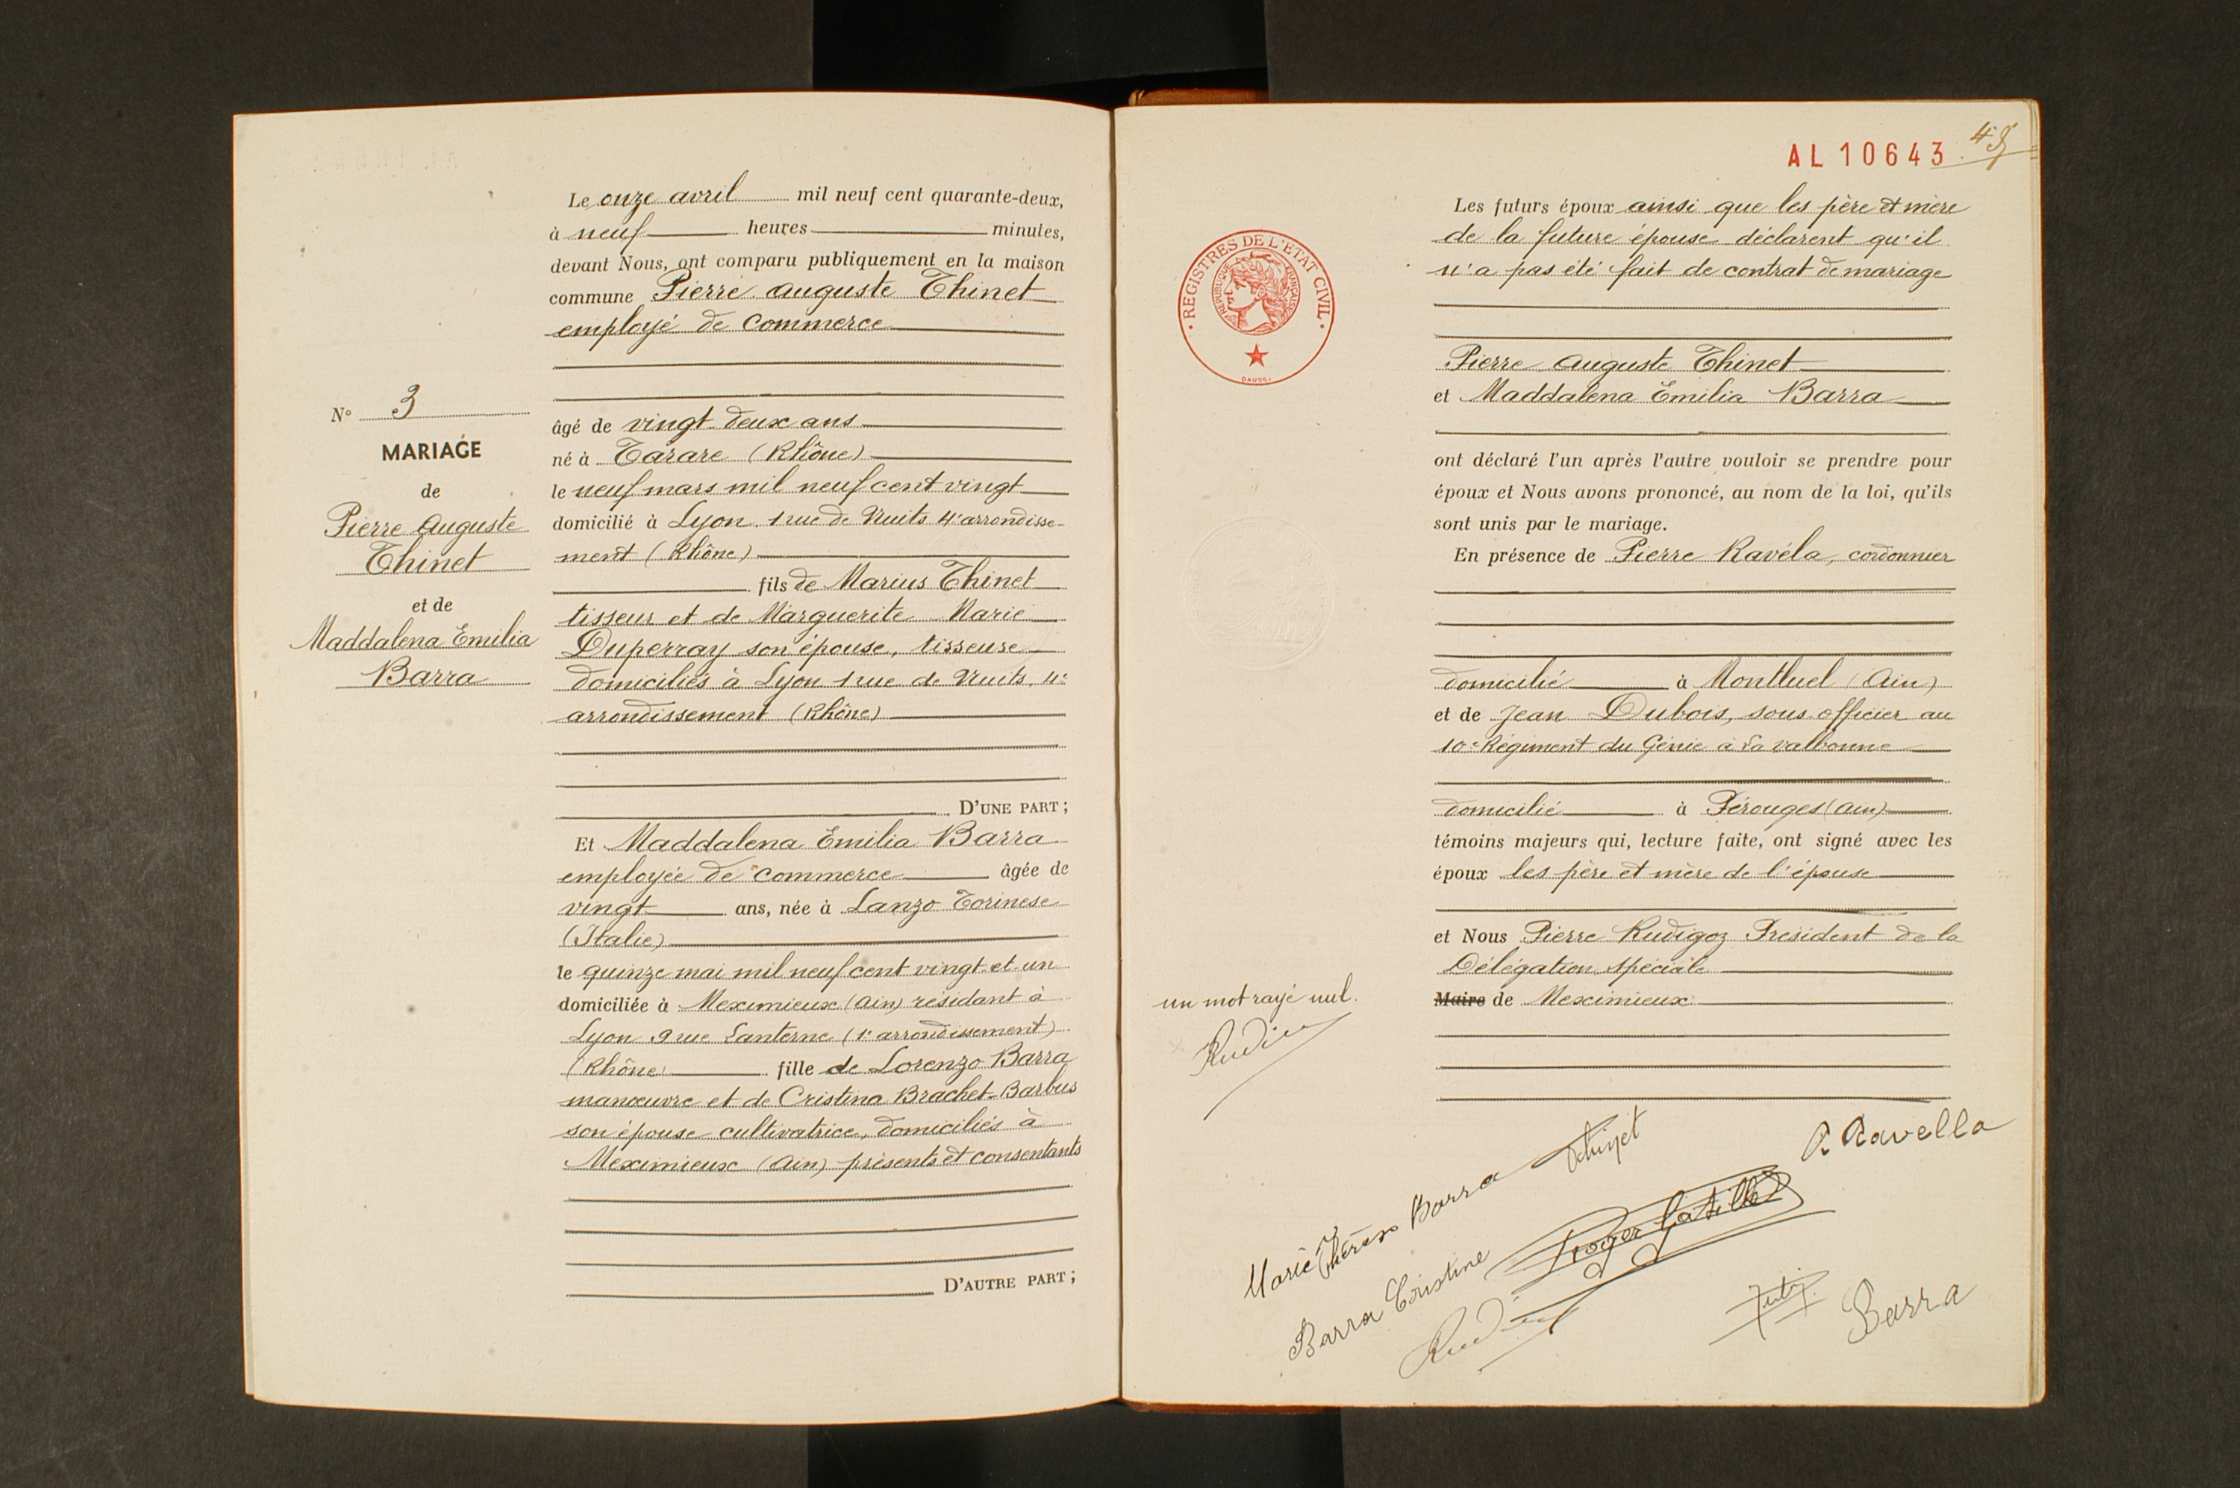 Le onze avril mil neuf cent quarante-deux,
à neuf heures minutes,
devant Nous, ont comparu publiquement en la maison
commune Pierre Auguste Thinet
employé de commerce
N° 3
MARIAGE
de
Pierre Auguste
Thinet
et de
Maddalena Emilia
Barra
âgé de vingt deux ans
né à Tarare (Rhône)
le neuf mars mil neuf cent vingt
domicilié à Lyon 1 rue de Nuits 4e arrondisse-
ment (Rhône)
fils de Marius Thinet
tisseur et de Marguerite Marie
Duperray son épouse, tisseuse
domiciliés à Lyon 1 rue de Nuits, 4e
arrondissement (Rhône)
D'UNE PART;
Et Maddalena Emilia Barra
employée de commerce âgée de
vingt ans, née à Lanzo Torinese
(Italie)
le quinze mai mil neuf cent vingt et un
domiciliée à Meximieux (Ain) résidant à
Lyon 9 rue Lanterne (1e arrondissement)
(Rhône) fille de Lorenzo Barra
manœuvre et de Cristina Brachet-Barbus
son épouse cultivatrice, domiciliés à
Meximieux (Ain) présents et consentants
D'AUTRE PART;
AL 10643
REGISTRES DE L'ETAT CIVIL
REPUBLIQUE FRANÇAISE
Les futurs époux ainsi que les père et mère
de la future épouse déclarent qu'il
n'a pas été fait de contrat de mariage
Pierre Auguste Thinet
et Maddalena Emilia Barra
ont déclaré l'un après l'autre vouloir se prendre pour
époux et Nous avons prononcé, au nom de la loi, qu'ils
sont unis par le mariage.
En présence de Pierre Ravéla, cordonnier
domicilié à Montluel (Ain)
et de Jean Dubois, sous-officier au
10e Régiment du Génie à La Valbonne
domicilié à Pérouges (Ain)
témoins majeurs qui, lecture faite, ont signé avec les
époux les père et mère de l'épouse
et Nous Pierre Rudigoz Président de la
Délégation spéciale
Maire de Meximieux
un mot rayé nul.
P Ravella
Marie Thérèse Barra
Barra Cristine
Barra